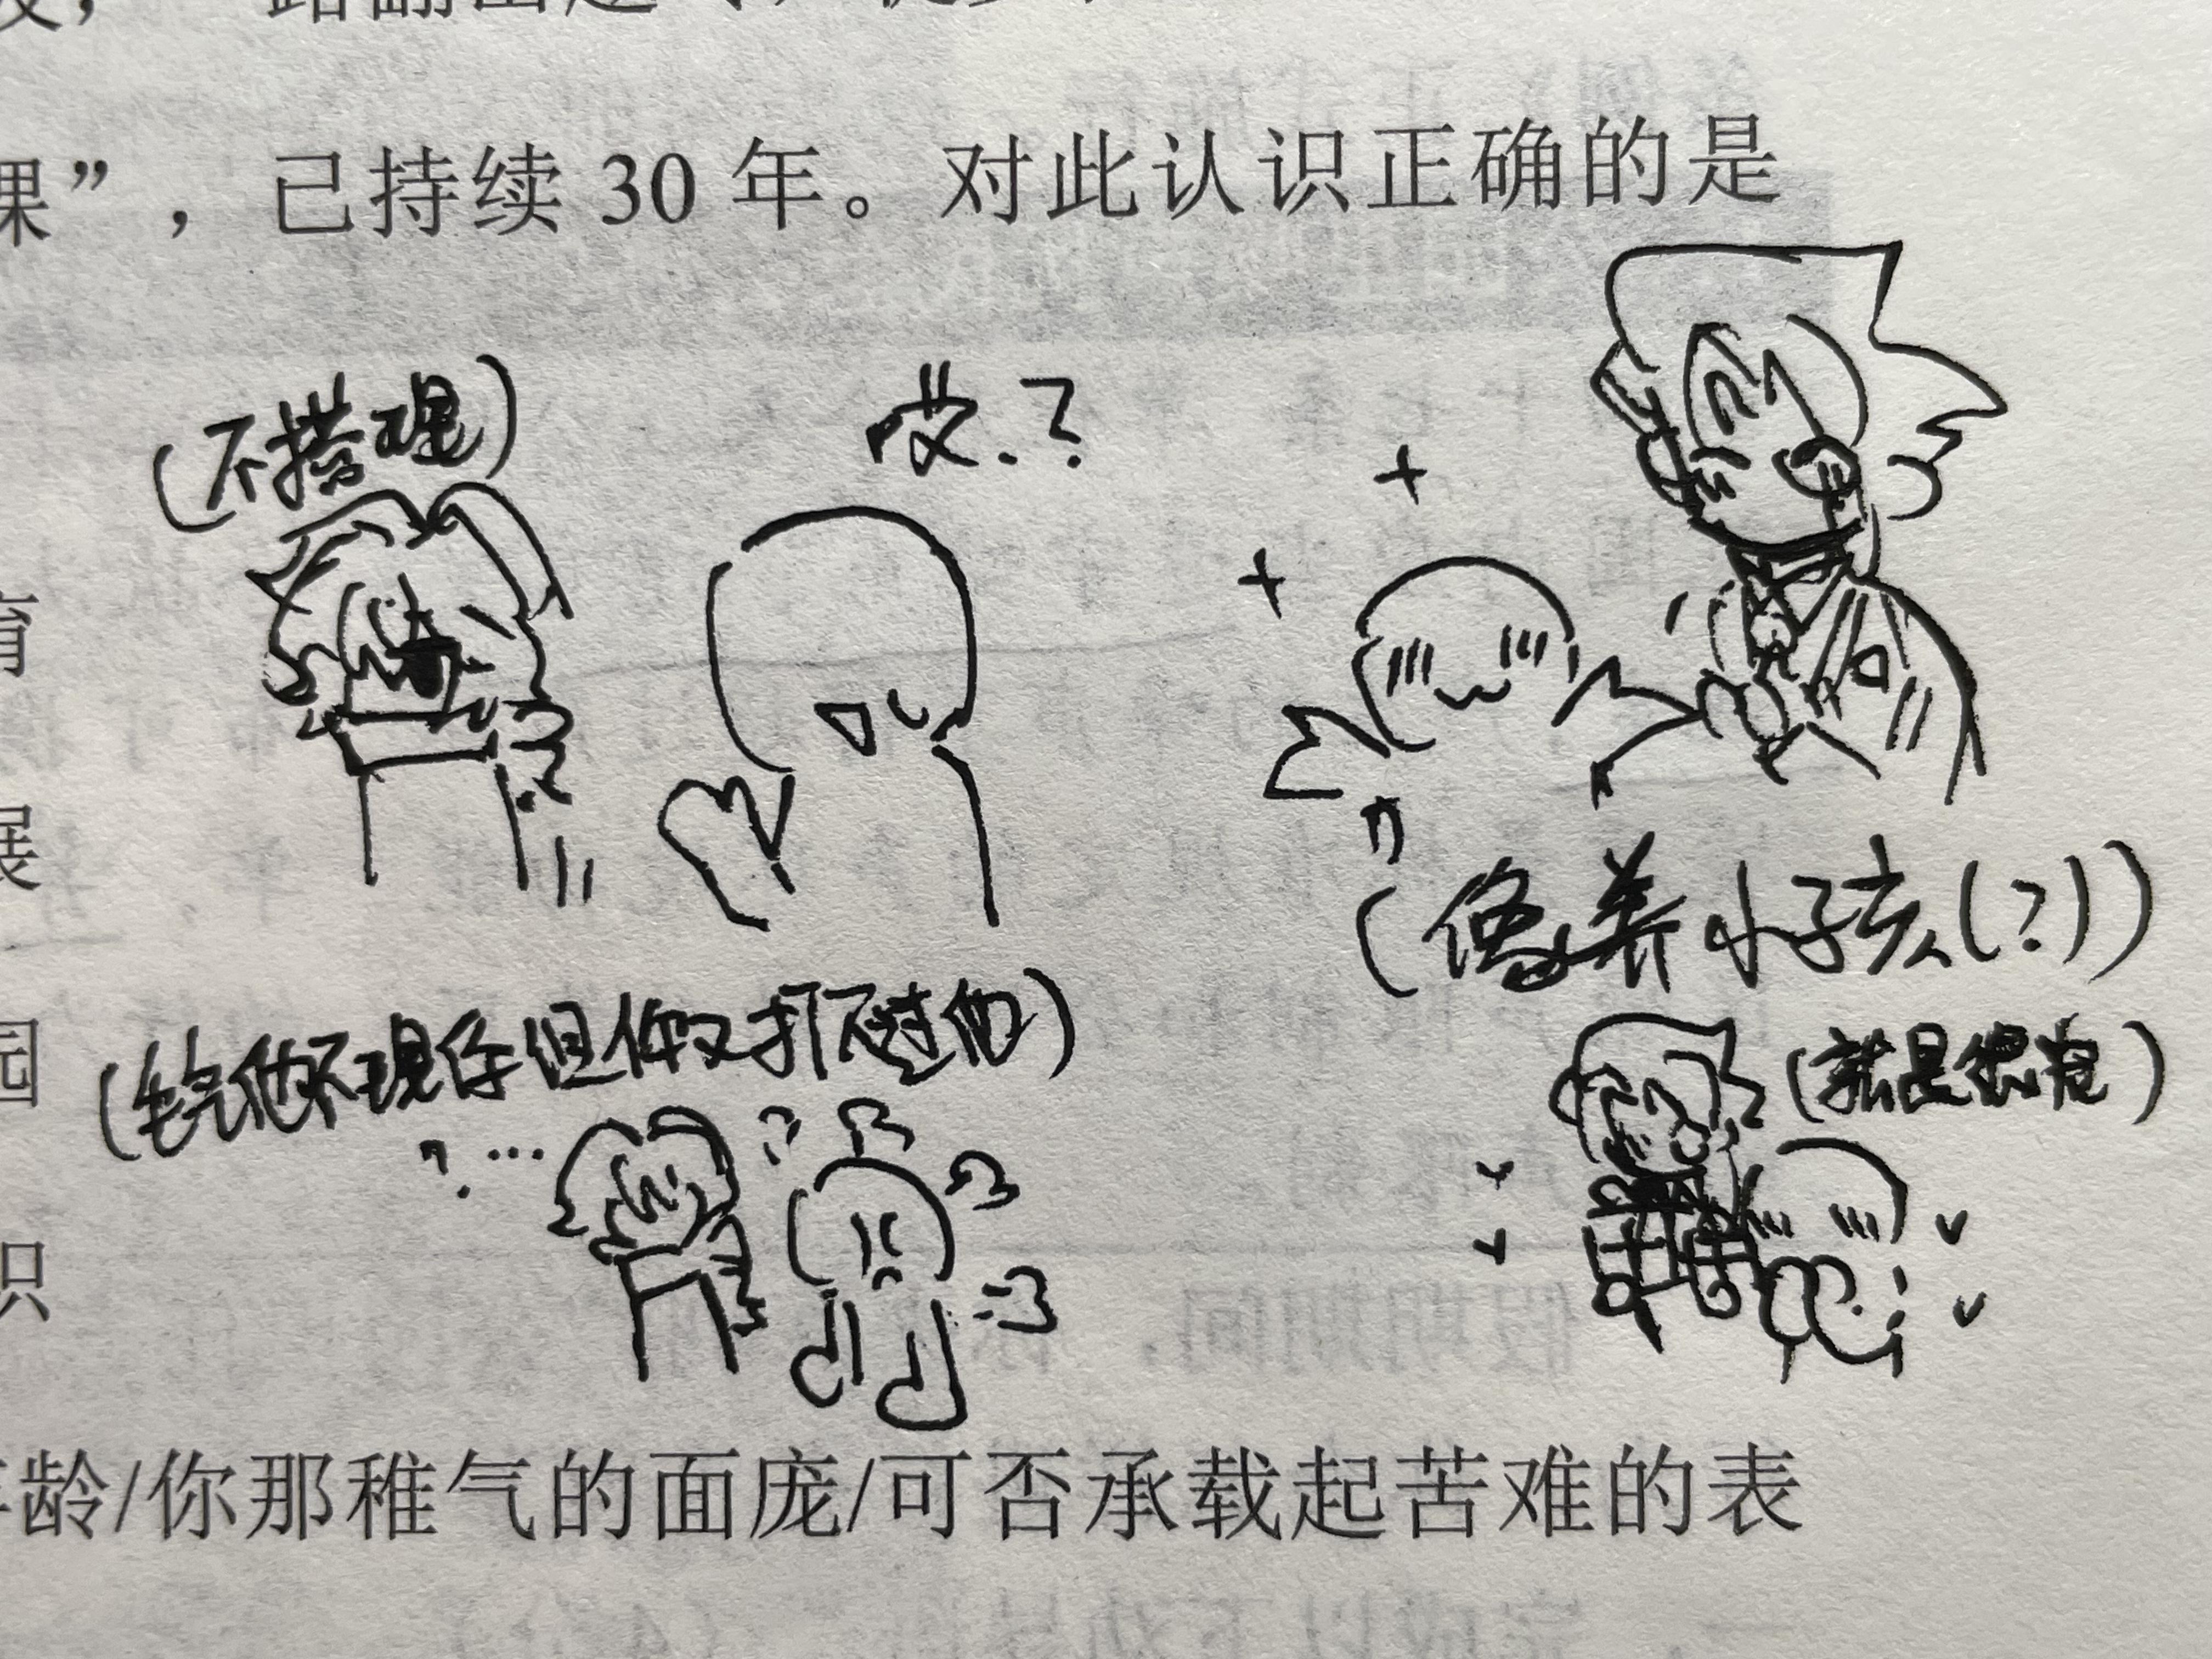 课”，已持续 30 年。对此认识正确的是
(不搭理)
哎.?
育
(像养小孩(?))
展
(生气他不理你但你又打不过他)
(就是很宠)
?...
园
识
年龄/你那稚气的面庞/可否承载起苦难的表